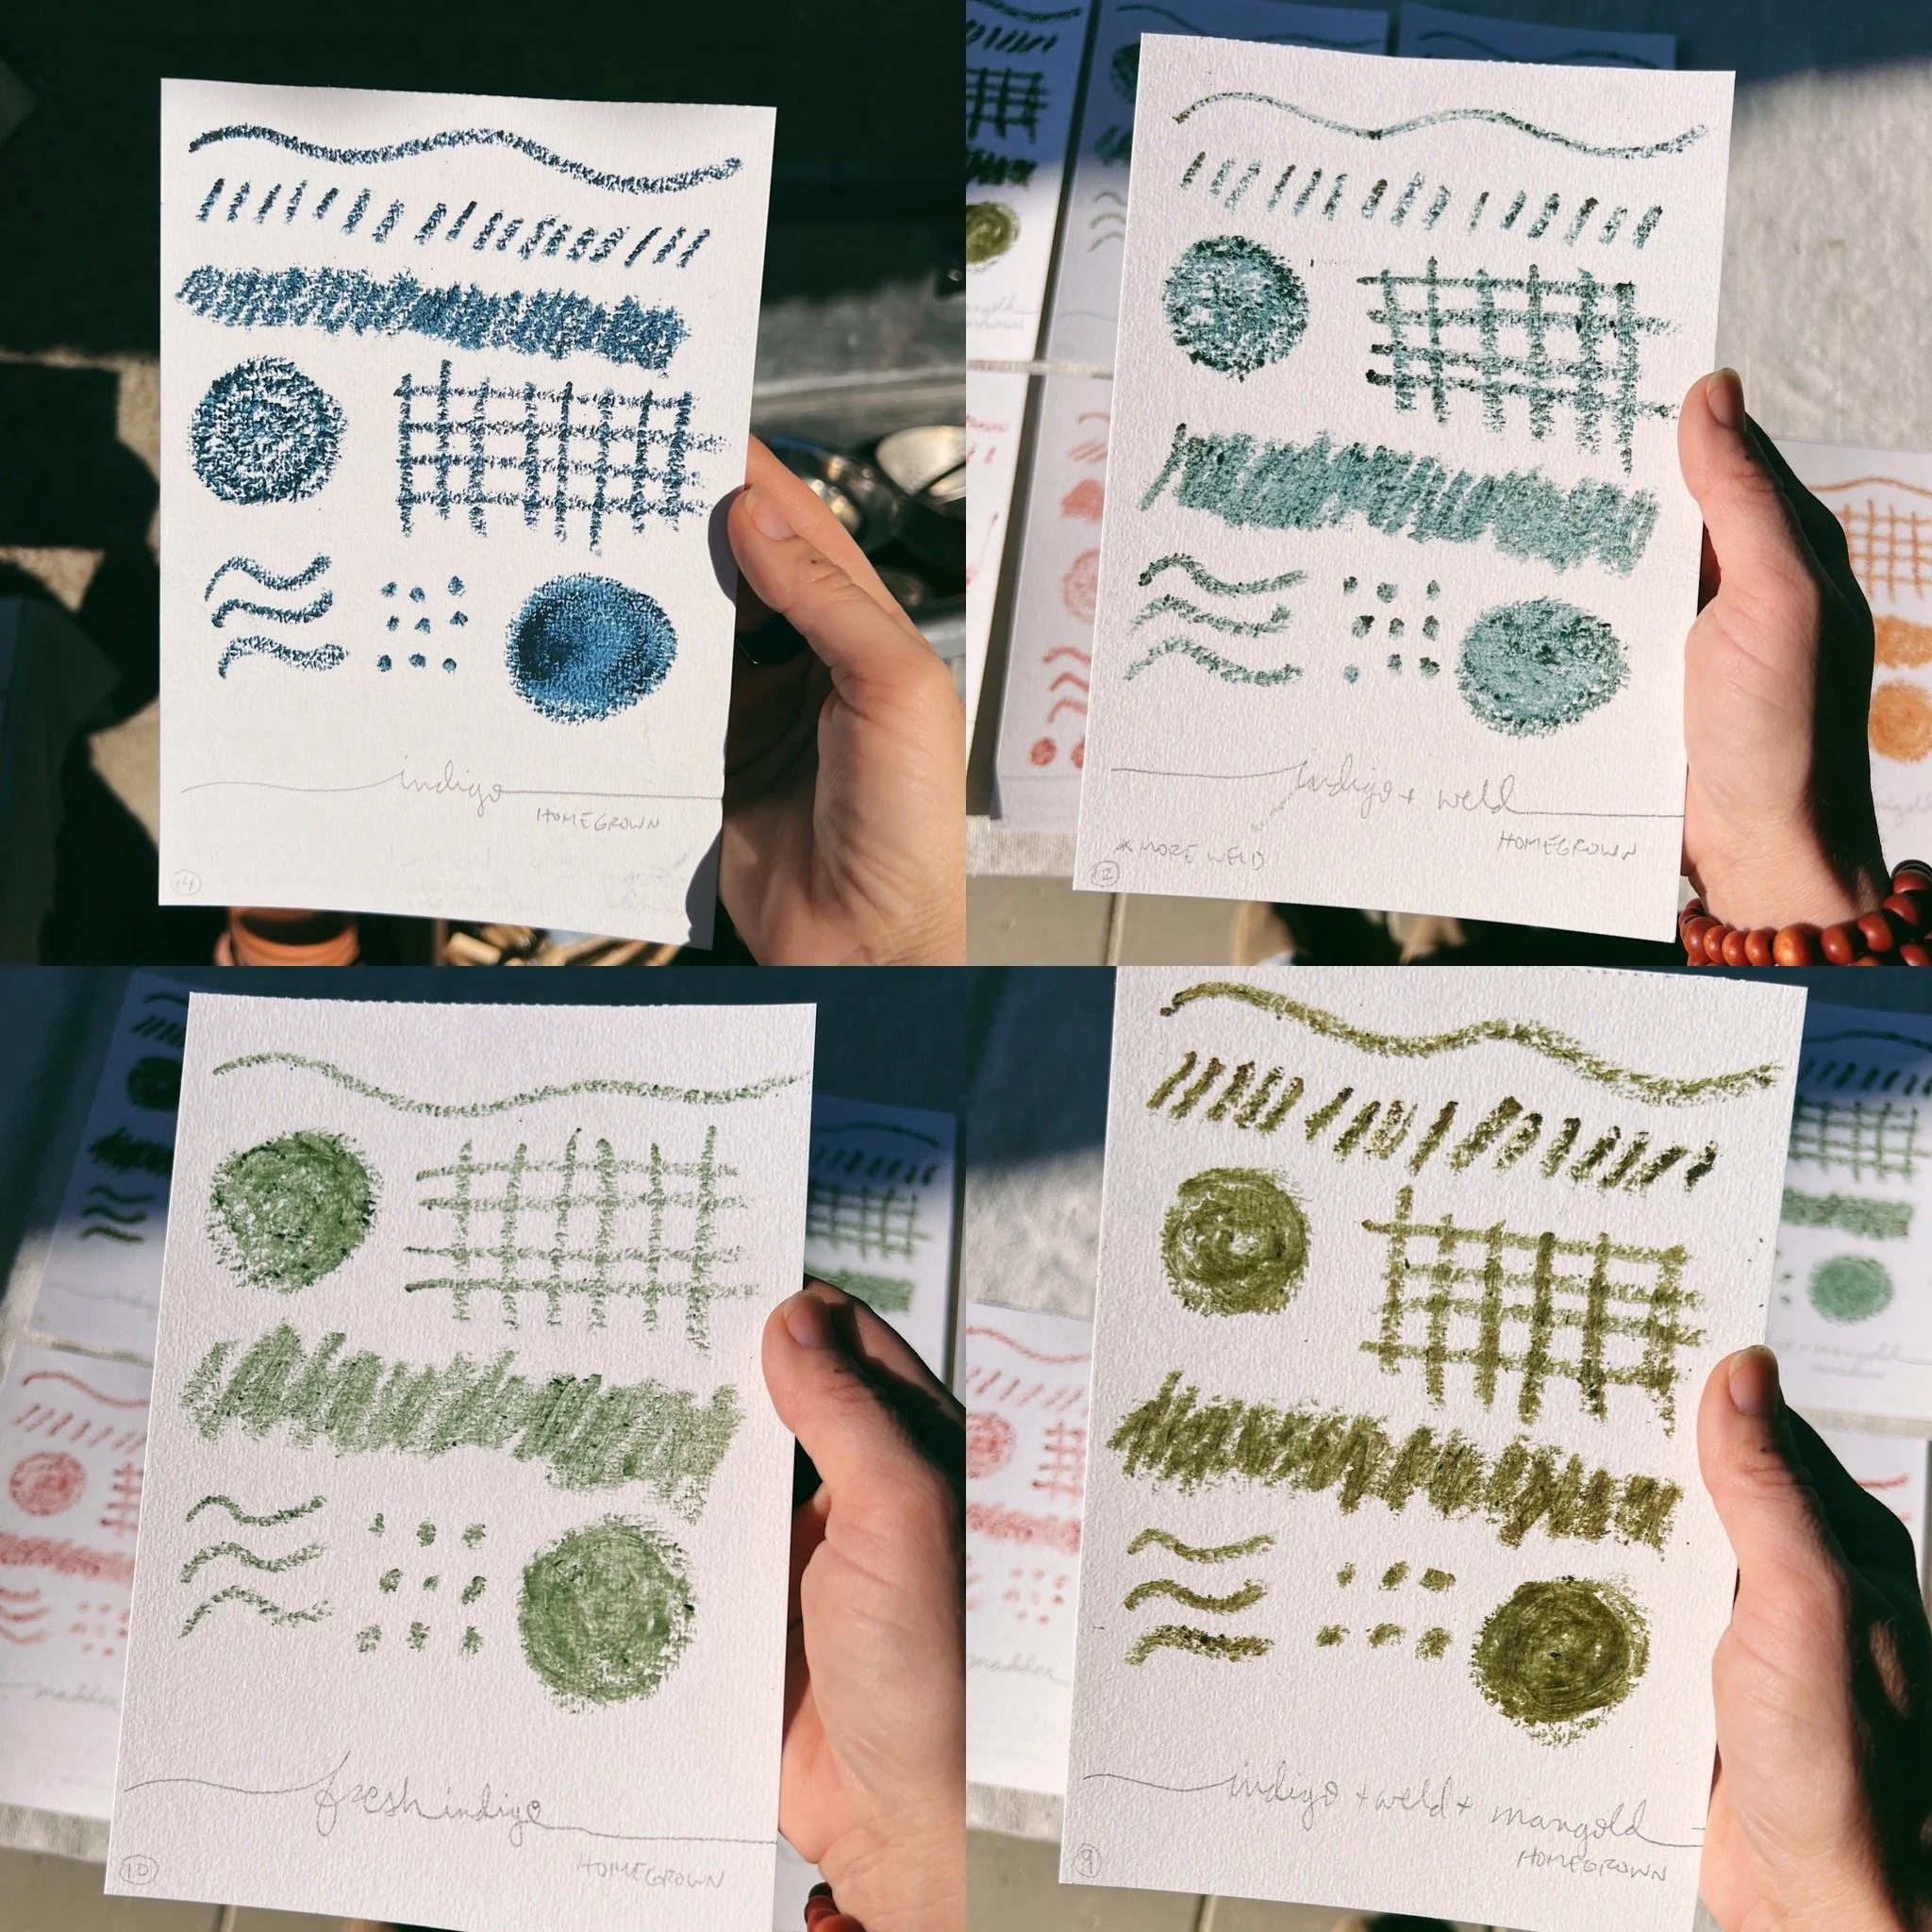 indigo
HOMEGROWN
14
indigo + weld
HOMEGROWN
* MORE WELD
12
fresh indigo
HOMEGROWN
10
madder
indigo + weld + marigold
HOMEGROWN
9
madder